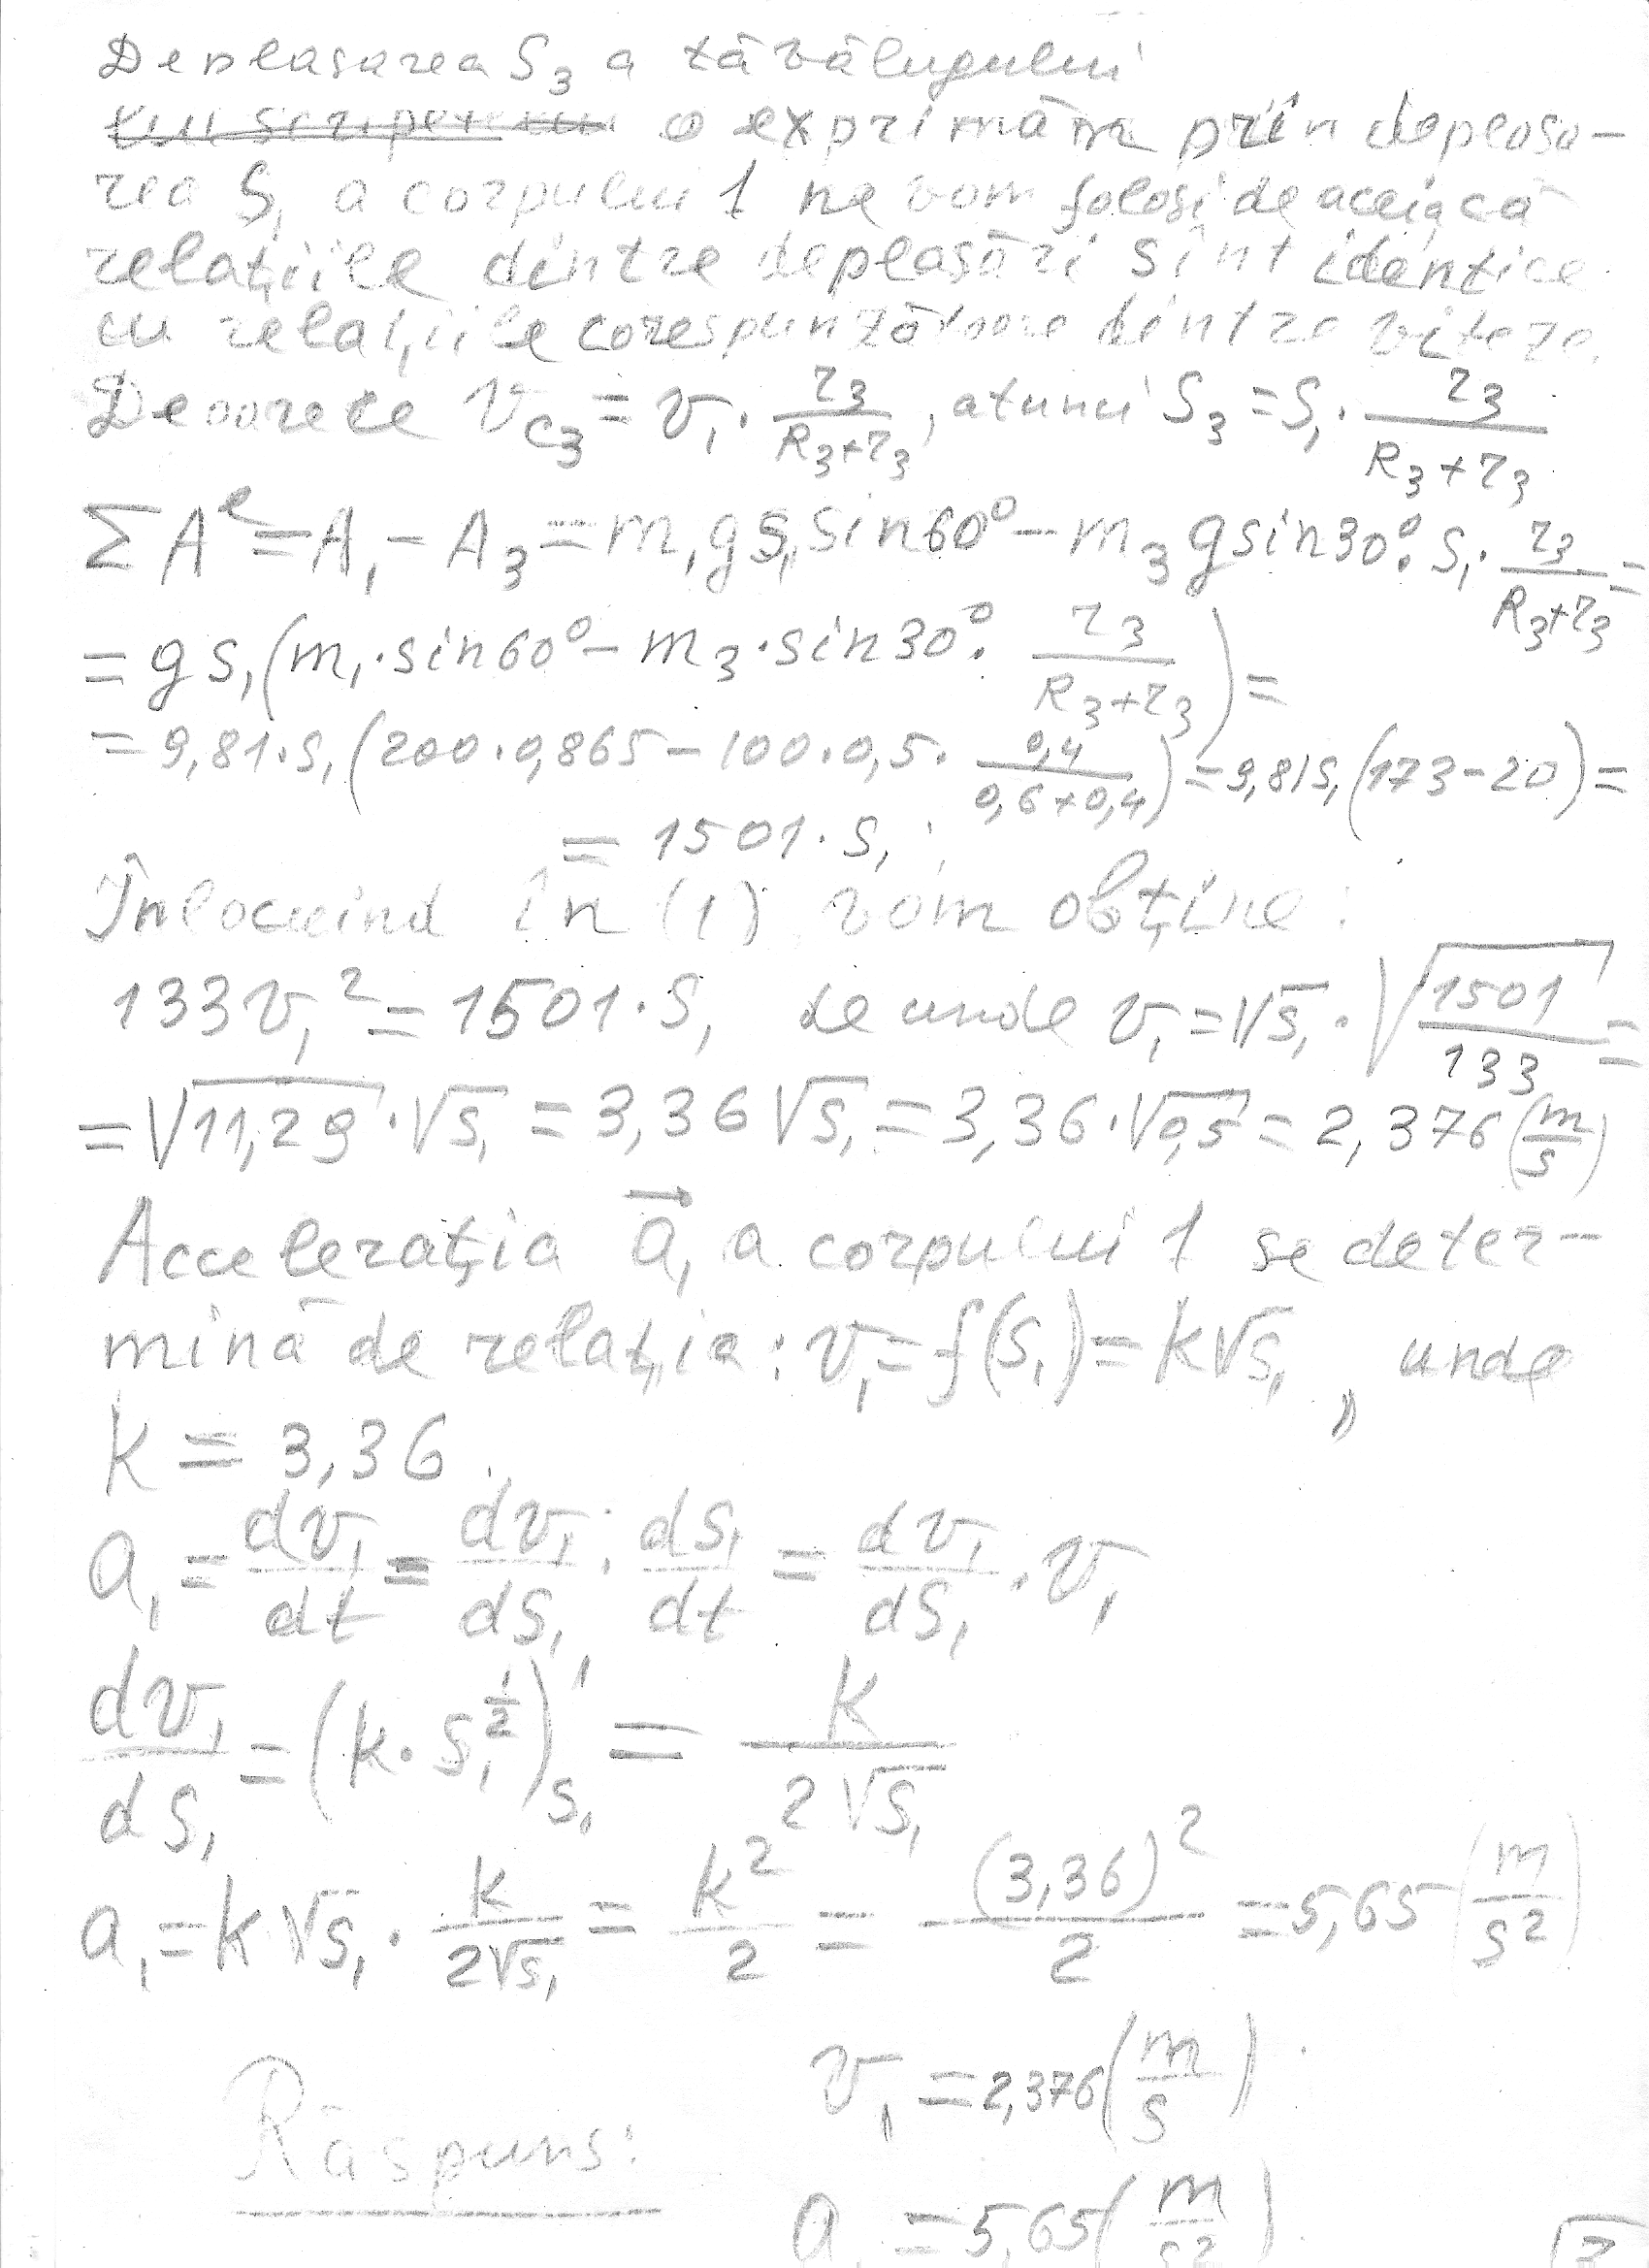 Deplasarea S₃ a tăvălugului
o exprimăm prin deplasa-
rea S₁ a corpului 1 ne vom folosi de aceia că
relațiile dintre deplasări sînt identice
cu relațiile corespunzătoare dintre viteze.
Deoarece v_C3 = v₁ · r₃/(R₃+r₃), atunci S₃ = S₁ · r₃/(R₃+r₃)
ΣAᵉ = A₁ - A₃ = m₁gs₁ sin60° - m₃g sin30° · S₁ · r₃/(R₃+r₃) =
= gs₁(m₁·sin60° - m₃·sin30° · r₃/(R₃+r₃)) =
= 9,81·s₁(200·0,865 - 100·0,5 · 0,4/(0,6+0,4)) = 9,81s₁(173-20) =
= 1501·s₁;
Înlocuind în (1) vom obține:
133v₁² = 1501·S₁ de unde v₁ = √s₁ · √(1501/133) =
= √11,29 · √s₁ = 3,36√s₁ = 3,36·√0,5 = 2,376 (m/s)
Accelerația a⃗₁ a corpului 1 se deter-
mină de relația: v₁ = f(s₁) = k√s₁, unde
k = 3,36.
a₁ = dv₁/dt = dv₁/ds₁ · ds₁/dt = dv₁/ds₁ · v₁
dv₁/ds₁ = (k·s₁^(1/2))'_s₁ = k/(2√s₁)
a₁ = k√s₁ · k/(2√s₁) = k²/2 = (3,36)²/2 = 5,65 (m/s²)
v₁ = 2,376 (m/s)
Răspuns:
a₁ = 5,65 (m/s²)